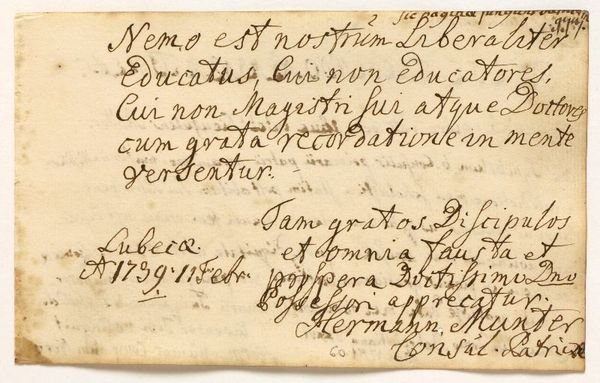 sic pagina jungit
Nemo est nostrûm Liberaliter
Educatus, Cui non educatores,
Cui non Magistri sui atque Doctores
cum grata recordatione in mente
versentur.
Tam gratos Discipulos
et omnia fausta et
prospera Doctissimo Dno
Possessori apprecatur.
Hermann. Munter
Consul. Patriæ
Lubecæ.
A 1739. 11 Febr.
60